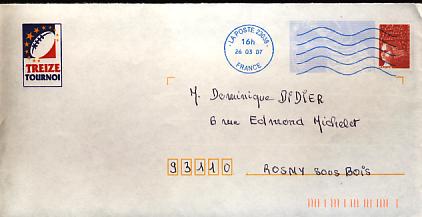 TREIZE
TOURNOI
LA POSTE 23018
16h
26 03 07
FRANCE
M. Dominique DIDIER
6 rue Edmond Michelet
93110 ROSNY SOUS BOIS